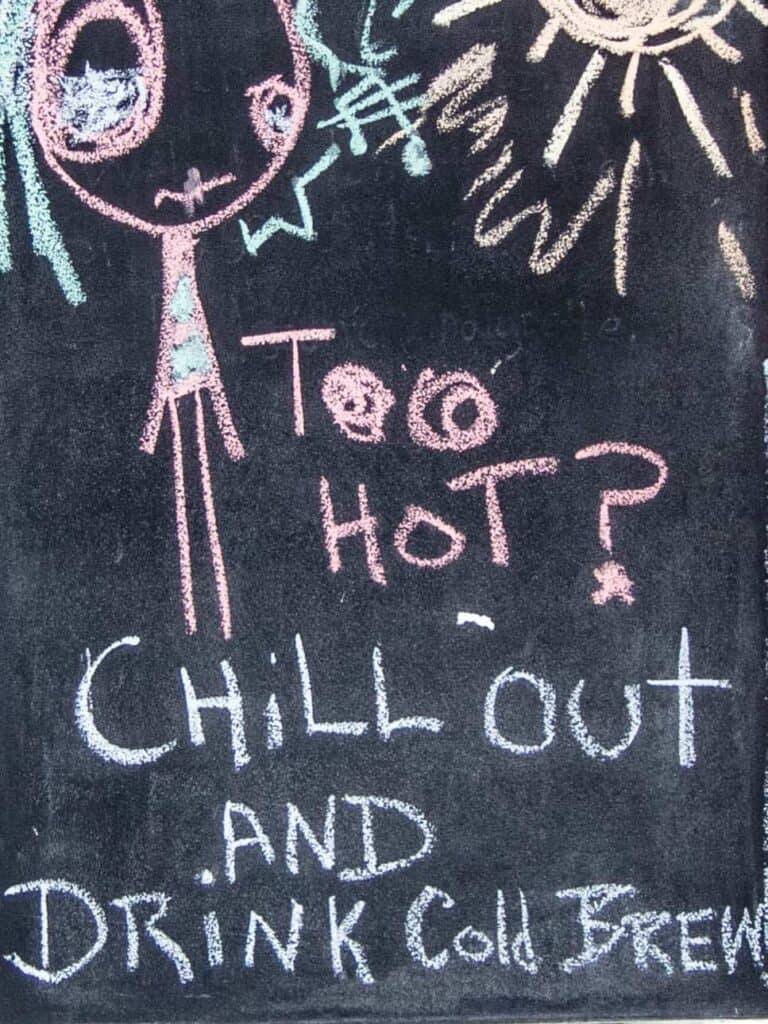 Too
HOT?
CHiLL OuT
AND
DRiNK Cold BREW